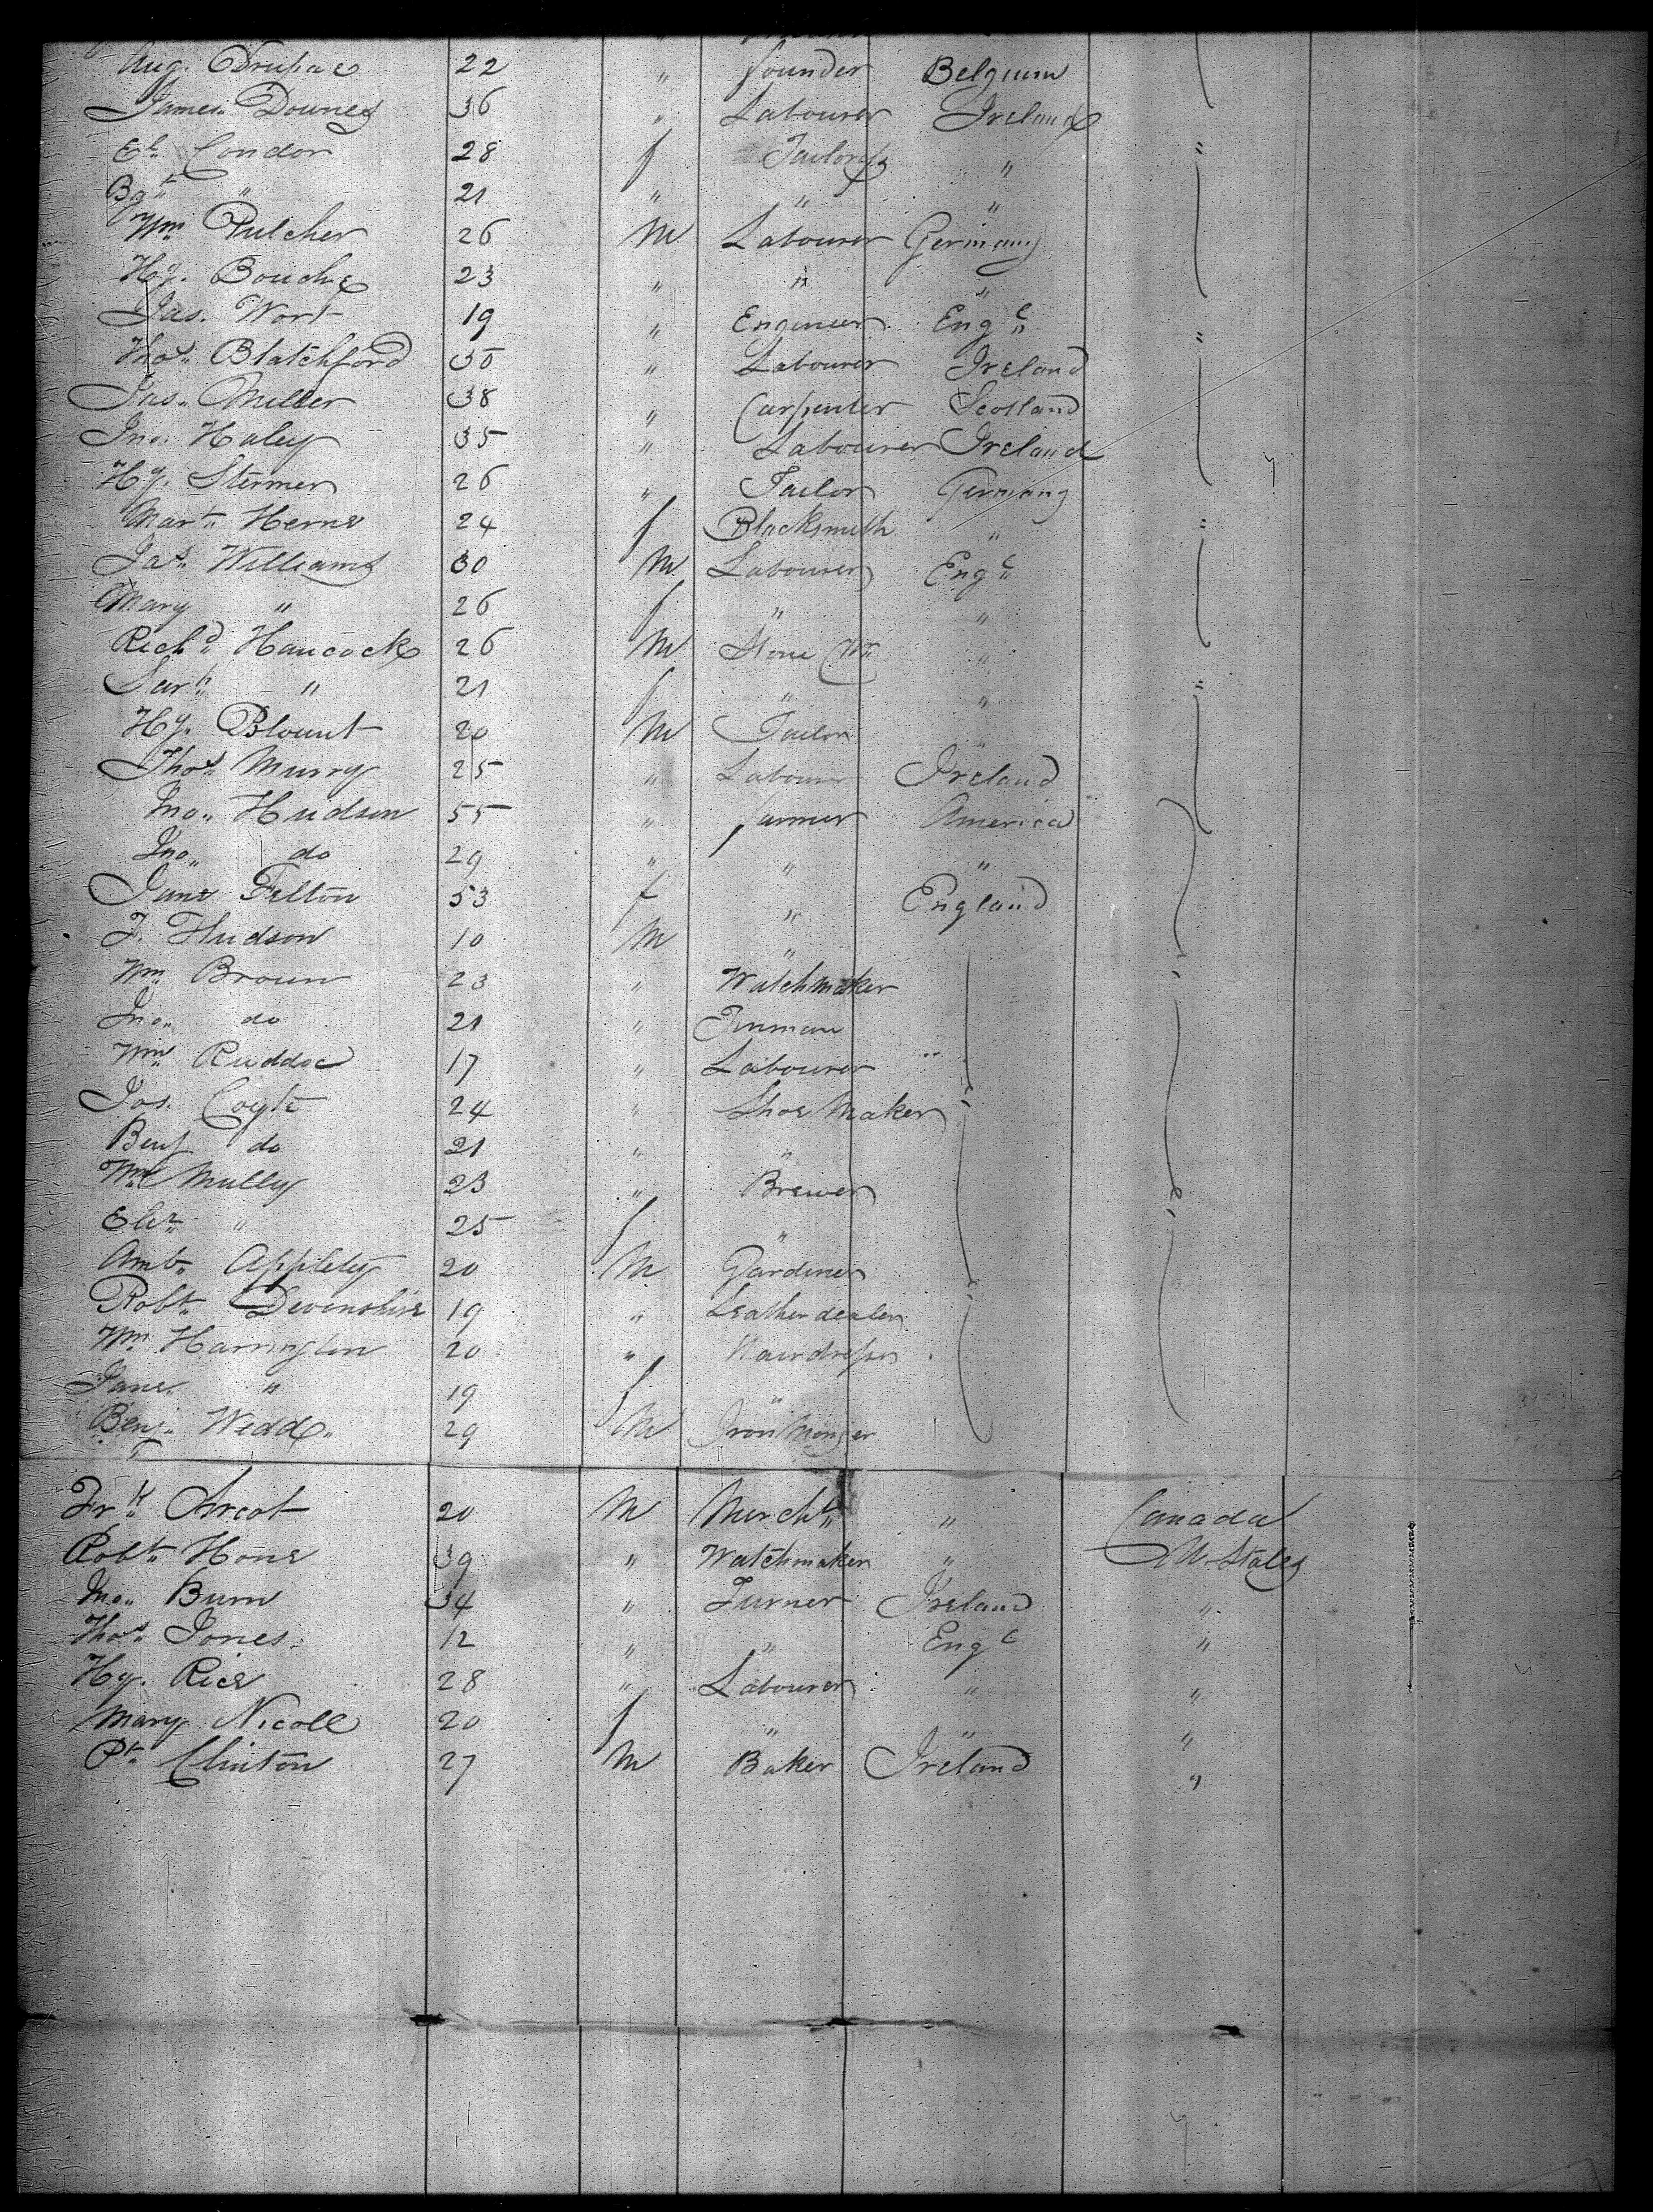 Aug. 22 " founder Belgium
James Downes 36 " Labourer Ireland
Eh. Condon 28 f Tailoress " "
Bgt. " 21 " " "
Wm Pulcher 26 M Labourer Germany
Hy. Bouche 23 " " "
Jas. Wort 19 " Engineer Engd "
Thos. Blatchford 30 " Labourer Ireland
Jas. Miller 38 " Carpenter Scotland
Jno. Haley 35 " Labourer Ireland
Hy. Stermer 26 " Tailor Germany
Mart. Herne 24 f Blacksmith " "
Jas. Williams 30 M Labourer Engd
Mary " 26 f " "
Richd Hancock 26 M Stone Ctr "
Sarh " 21 f " " "
Hy. Blount 20 M Tailor "
Thos. Murry 25 " Labourer Ireland
Jno. Hudson 55 " farmer America
Jno. do 29 " " "
Jane Felton 53 f " England
J. Hudson 10 M "
Wm Brown 23 " Watchmaker
Jno. do 21 " Tinman
Wm Ruddoc 17 " Labourer
Jos. Coyte 24 " Shoe Maker
Benj do 21 " "
Wm Mully 23 " Brewer
Eliz. " 25 f "
Amb. Appleby 20 M Gardiner
Robt. Devonshire 19 " Leather dealer
Wm Harrington 20 " Hairdresser
Jane " 19 f "
Benj. Wedd 29 M Iron Monger
Frk. Arcot 20 M Mercht. " Canada
Robt. Hone 39 " Watchmaker " U. States
Jno. Burn 34 " Turner Ireland "
Thos. Jones 12 " " Engd "
Hy. Rice 28 " Labourer " "
Mary Nicoll 20 f " " "
Pt. Clinton 27 M Baker Ireland "